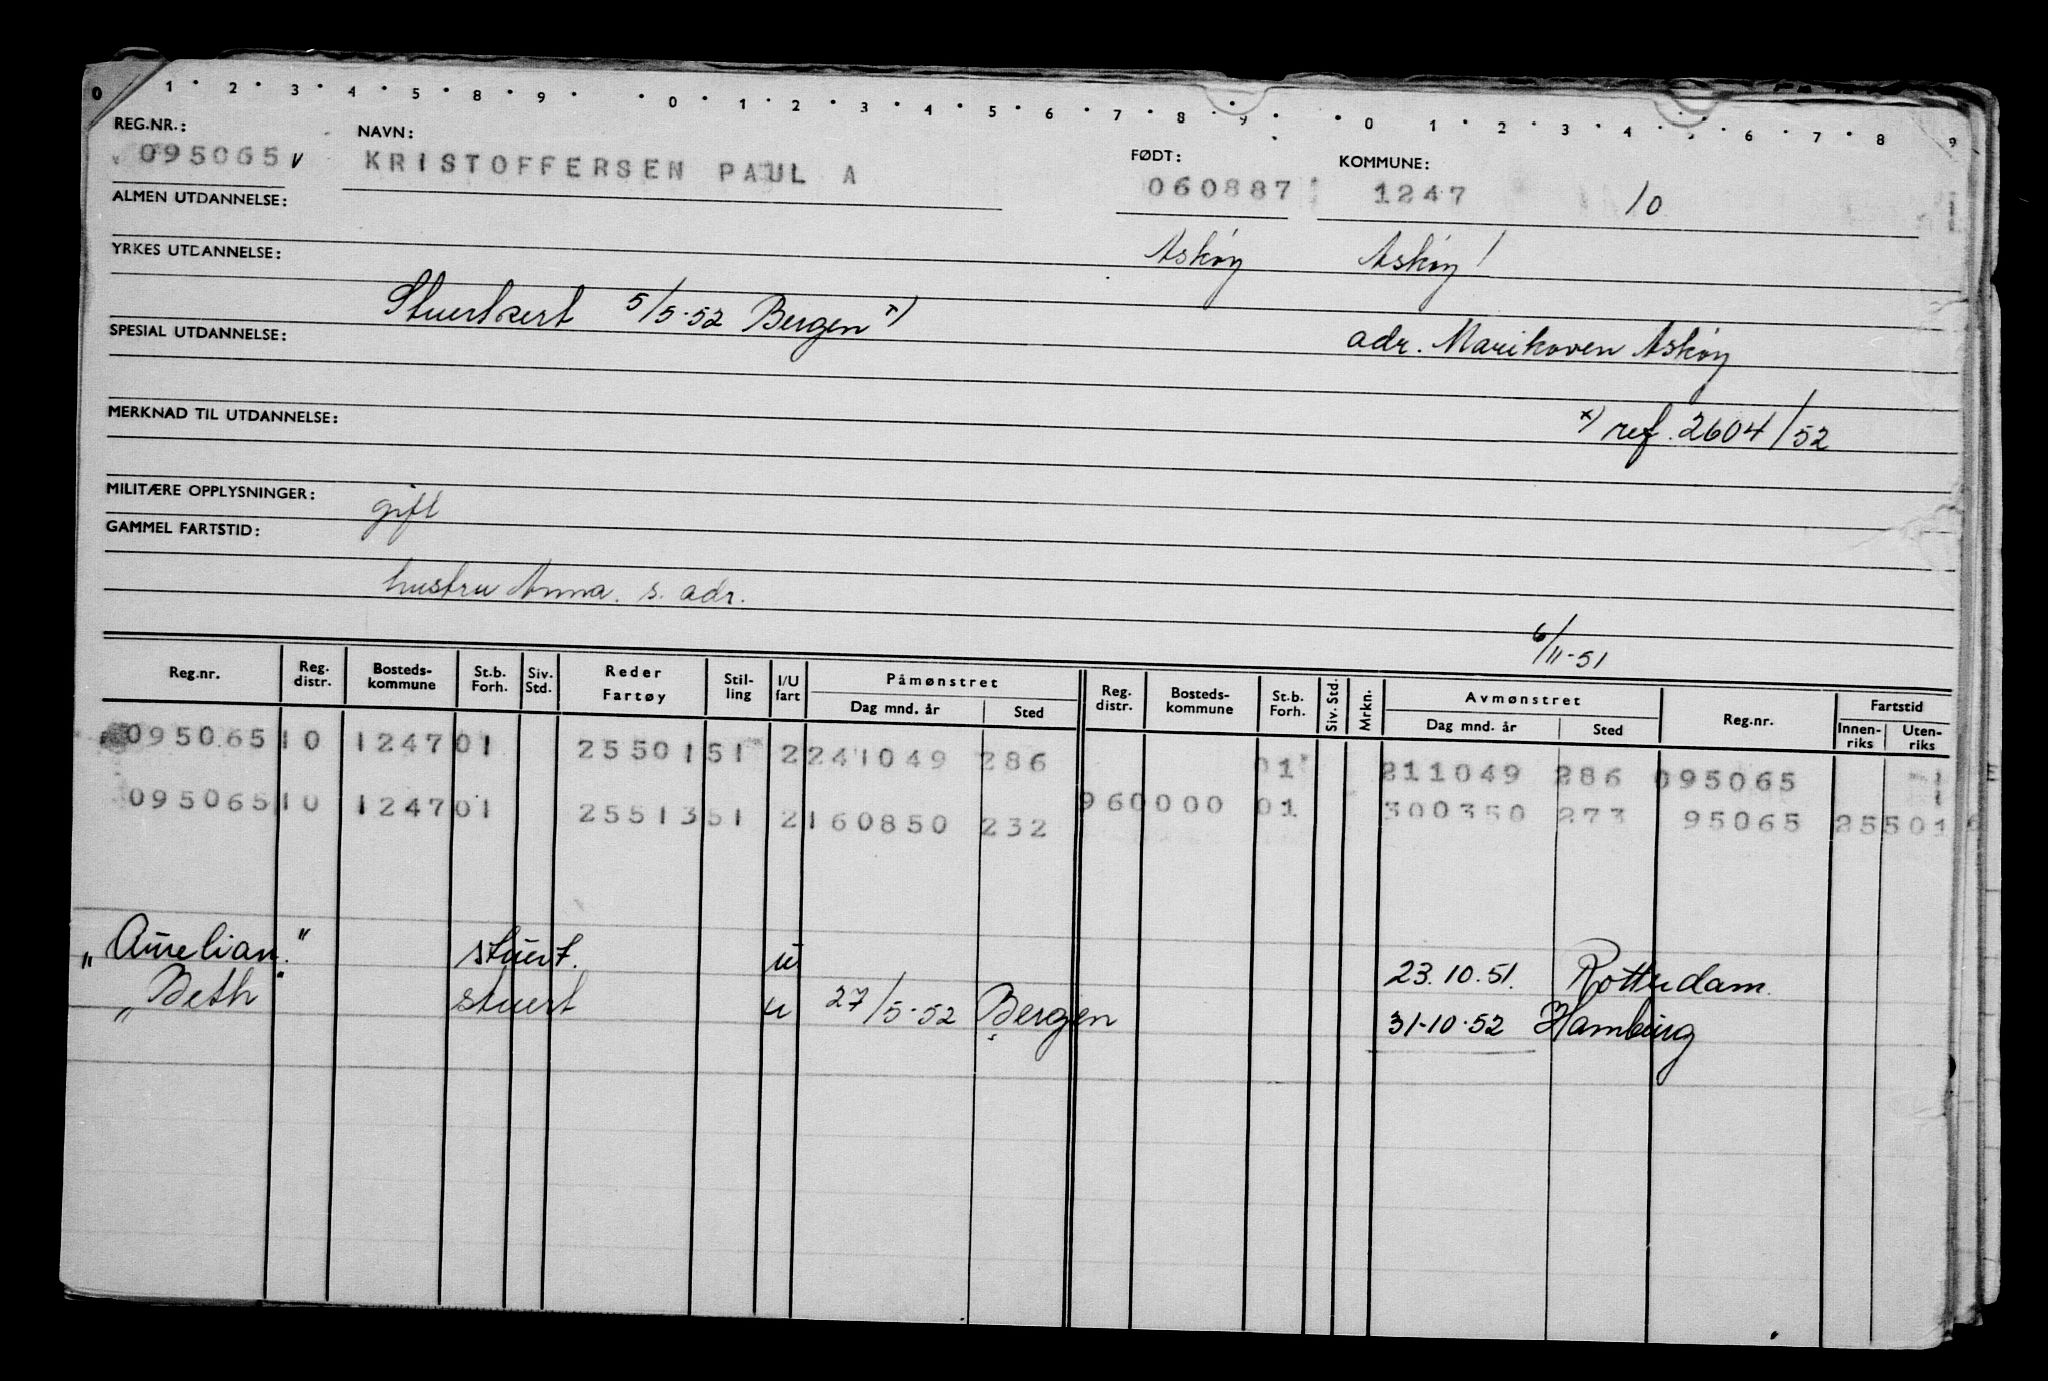 0 1 2 3 4 5 8 9 0 1 2 3 4 5 6 7 8 9 0 1 2 3 4 5 6 7 8 9
REG.NR.: NAVN: FØDT: KOMMUNE:
095065 v KRISTOFFERSEN PAUL A 060887 1247 10
ALMEN UTDANNELSE:
YRKES UTDANNELSE: Askøy Askøy
Stuertsert 5/5-52 Bergen x)
SPESIAL UTDANNELSE: adr. Marikoven Askøy
MERKNAD TIL UTDANNELSE: x) ref. 2604/52
MILITÆRE OPPLYSNINGER: gift
GAMMEL FARTSTID:
hustru Anna. s. adr.
6/11-51
Reg.nr. Reg. distr. Bosteds-kommune St.b. Forh. Siv. Std. Reder Fartøy Stil-ling I/U fart Påmønstret Dag mnd. år Sted Reg. distr. Bosteds-kommune St.b. Forh. Siv. Std. Mrkn. Avmønstret Dag mnd. år Sted Reg.nr. Fartstid Innen-riks Uten-riks
095065 10 1247 01 25501 51 2 241049 286 01 211049 286 095065
095065 10 1247 01 25513 51 2 160850 232 960000 01 300350 273 95065 25501 6
"Aurelian." stuert. u 23.10.51. Rotterdam.
"Beth" stuert u 27/5-52 Bergen 31-10-52 Hamburg